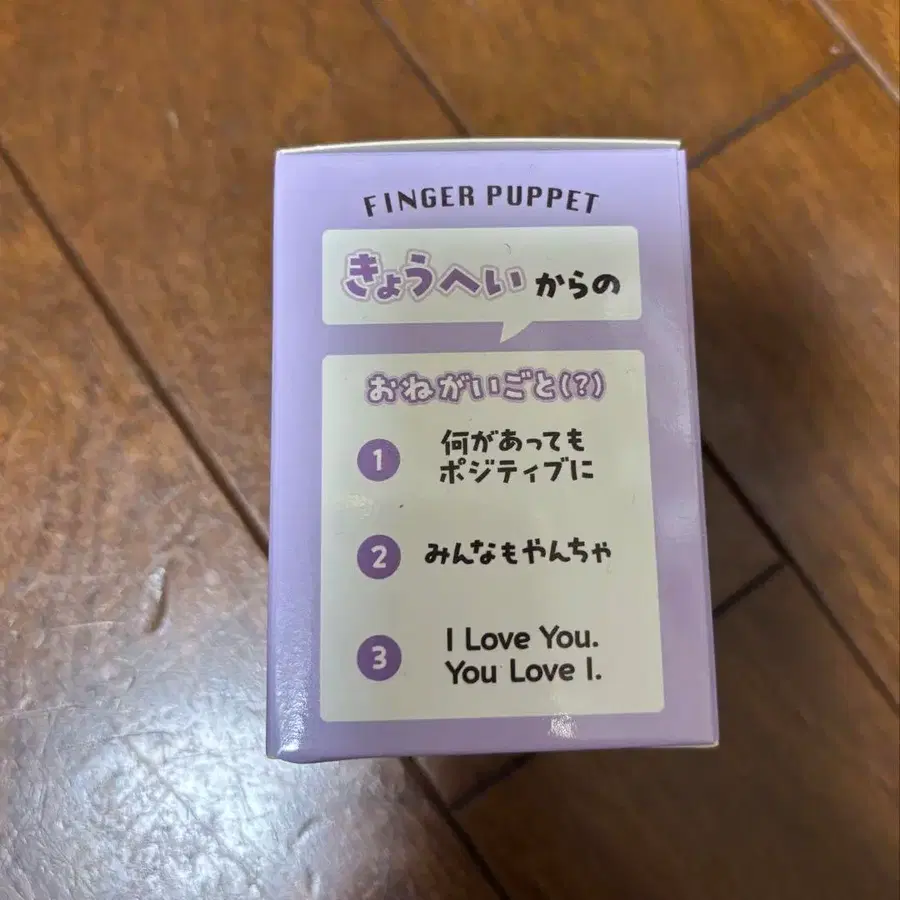 FINGER PUPPET
きょうへいからの
おねがいごと(?)
1 何があっても
ポジティブに
2 みんなもやんちゃ
3 I Love You.
You Love I.